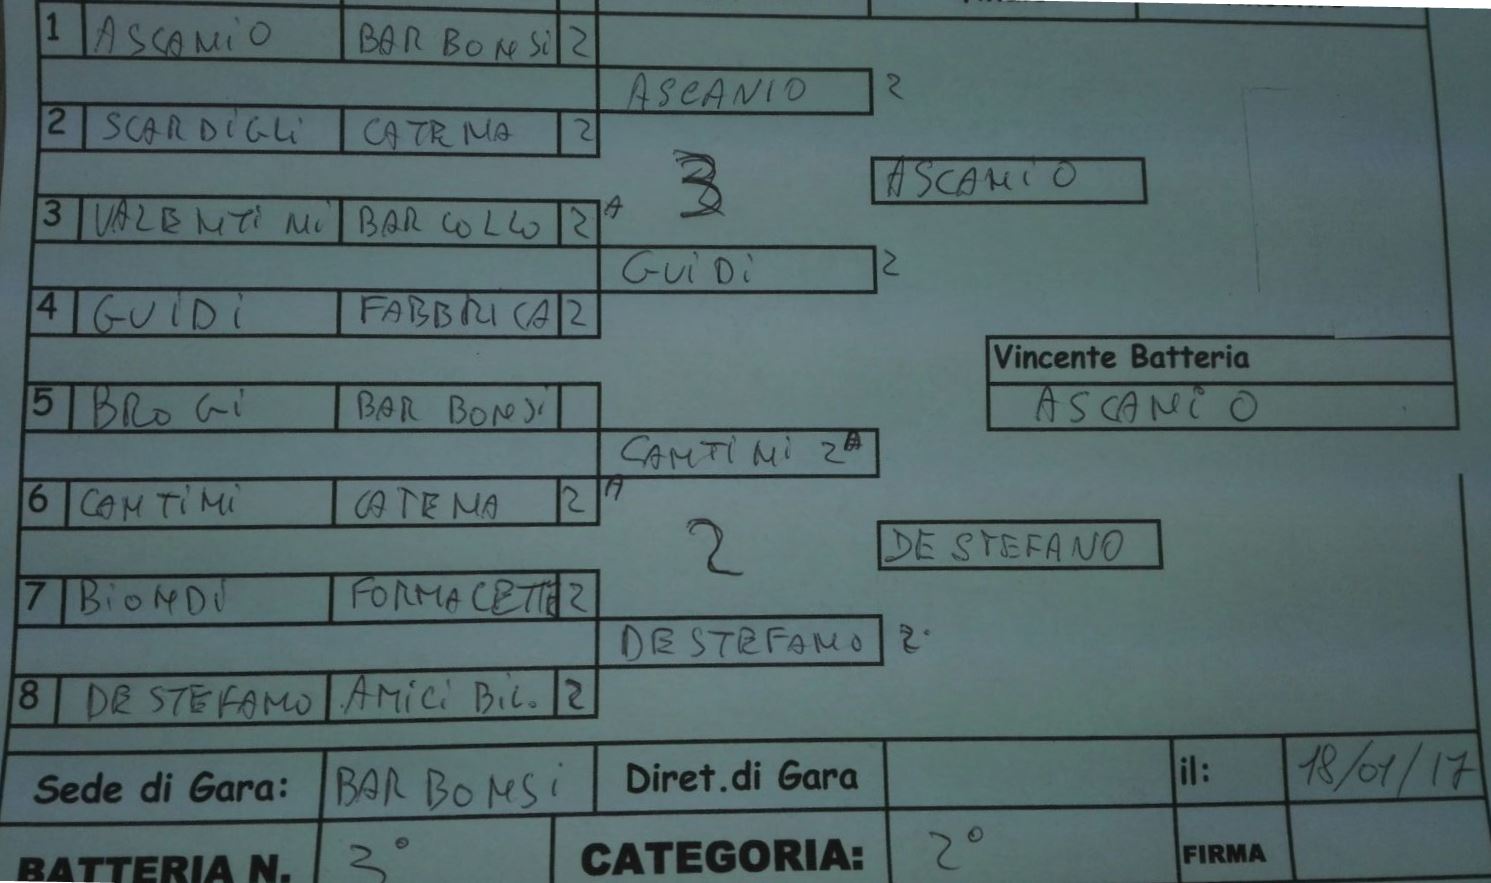 1 ASCANIO BAR BONSI 2
ASCANIO 2
2 SCARDIGLI CATENA 2
3 ASCANIO
3 VALENTINI BAR COLLO 2 A
GUIDI 2
4 GUIDI FABBRICA 2
Vincente Batteria
5 BROGI BAR BONSI
ASCANIO
CANTINI 2 A
6 CANTINI CATENA 2 A
2 DE STEFANO
7 BIONDI FORNACETTE 2
DE STEFANO 2
8 DE STEFANO AMICI BIL. 2
Sede di Gara: BAR BONSI Diret.di Gara il: 18/01/17
BATTERIA N. 3° CATEGORIA: 2° FIRMA